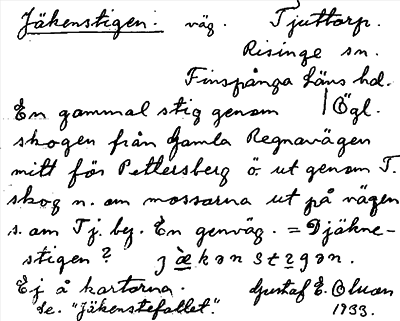 Jäkenstigen: väg. Tjuttorp.
Risinge sn.
Finspånga läns hd.
En gammal stig genom | Ögl.
skogen från Gamla Regnavägen
mitt för Pettersberg ö. ut genom T.
skog n. om mossarna ut på vägen
s. om Tj. beg. En genväg. = Djäkne-
stigen?
Ej å kartorna. Gustaf E. Olsson
Se. "Jäkenstefallet". 1933.